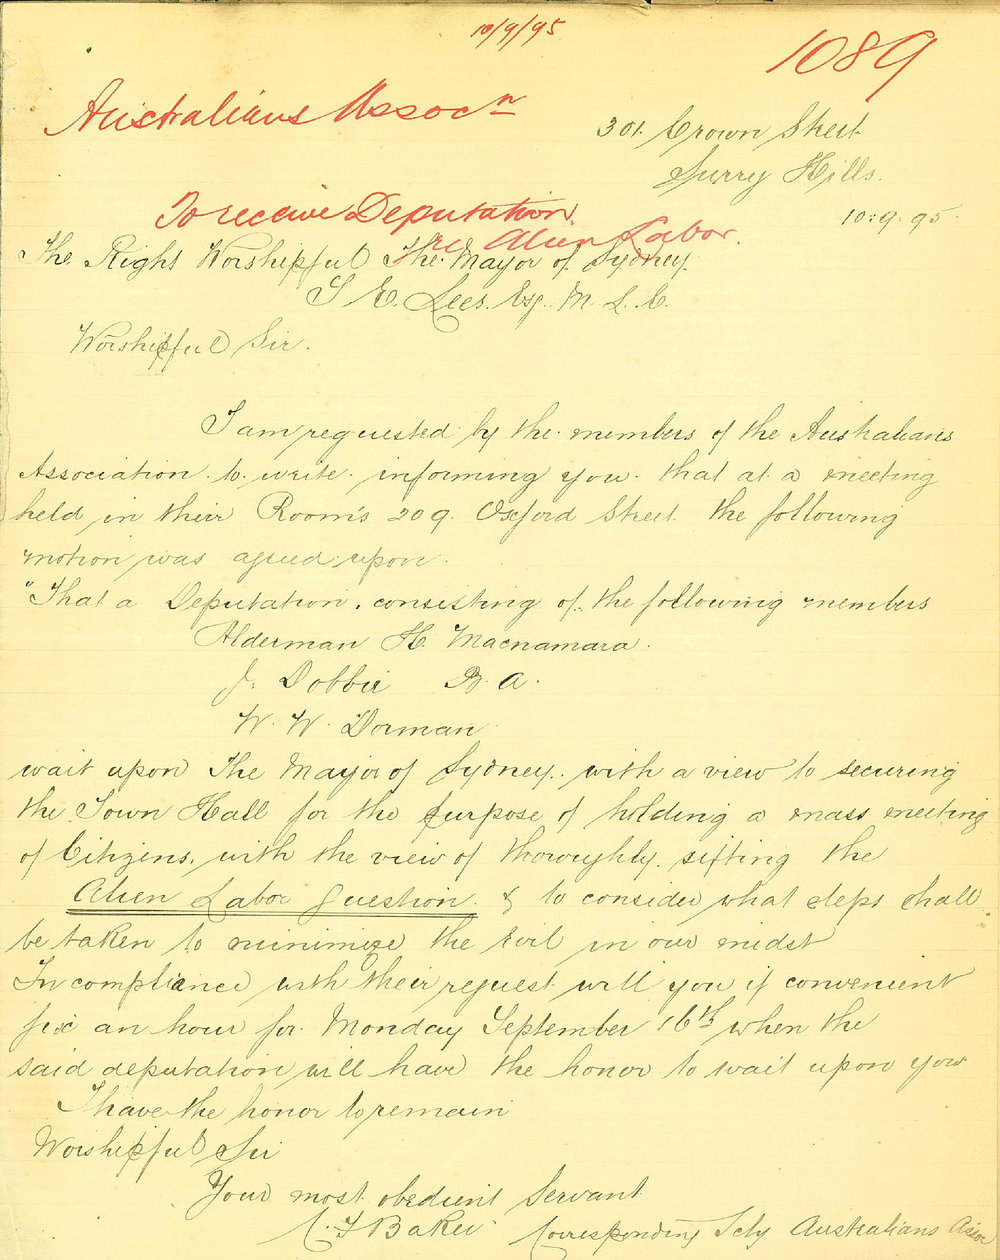 10/9/95
1089
Australians Assocn
301. Crown Street
Surry Hills.
10:9:95.
To receive Deputation
re Alien Labor.
The Right Worshipful The Mayor of Sydney.
S E. Lees. Esq. M. L. C.
Worshipful Sir.
I am requested by the members of the Australians
Association. to write informing you that at a meeting
held in their Room's 209. Oxford Street the following
motion was agreed upon.
"That a Deputation. consisting of. the following members
Alderman H. Macnamara.
J. Dobbie B. A.
W. W. Dorman
wait upon The Mayor of Sydney. with a view to securing
the Town Hall for the purpose of holding a mass meeting
of Citizens. with the view of thoroughly. sifting the
Alien Labor Question. & to consider what steps shall
be taken to minimize the Evil in our midst
In compliance with their request will you if convenient
fix an hour for Monday September 16th when the
said deputation will have the honor to wait upon you
I have the honor to remain
Worshipful Sir
Your most obedient Servant
C. F Baker Corresponding Scty Australians Assoc